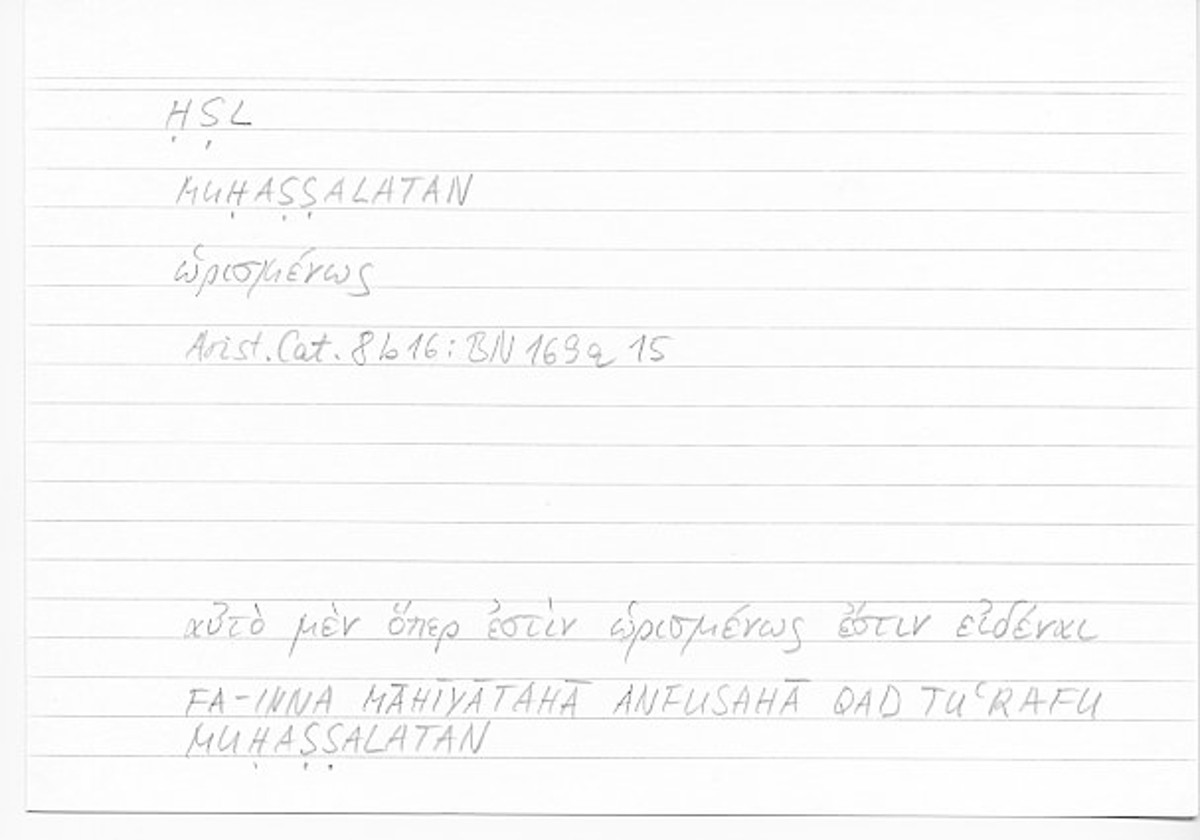 ḤṢL
MUḤAṢṢALATAN
ὡρισμένως
Arist. Cat. 8b16: BN 169a 15
αὐτὸ μὲν ὅπερ ἐστὶν ὡρισμένως ἔστιν εἰδέναι
FA-INNA MĀHĪYĀTAHĀ ANFUSAHĀ QAD TUʿRAFU
MUḤAṢṢALATAN